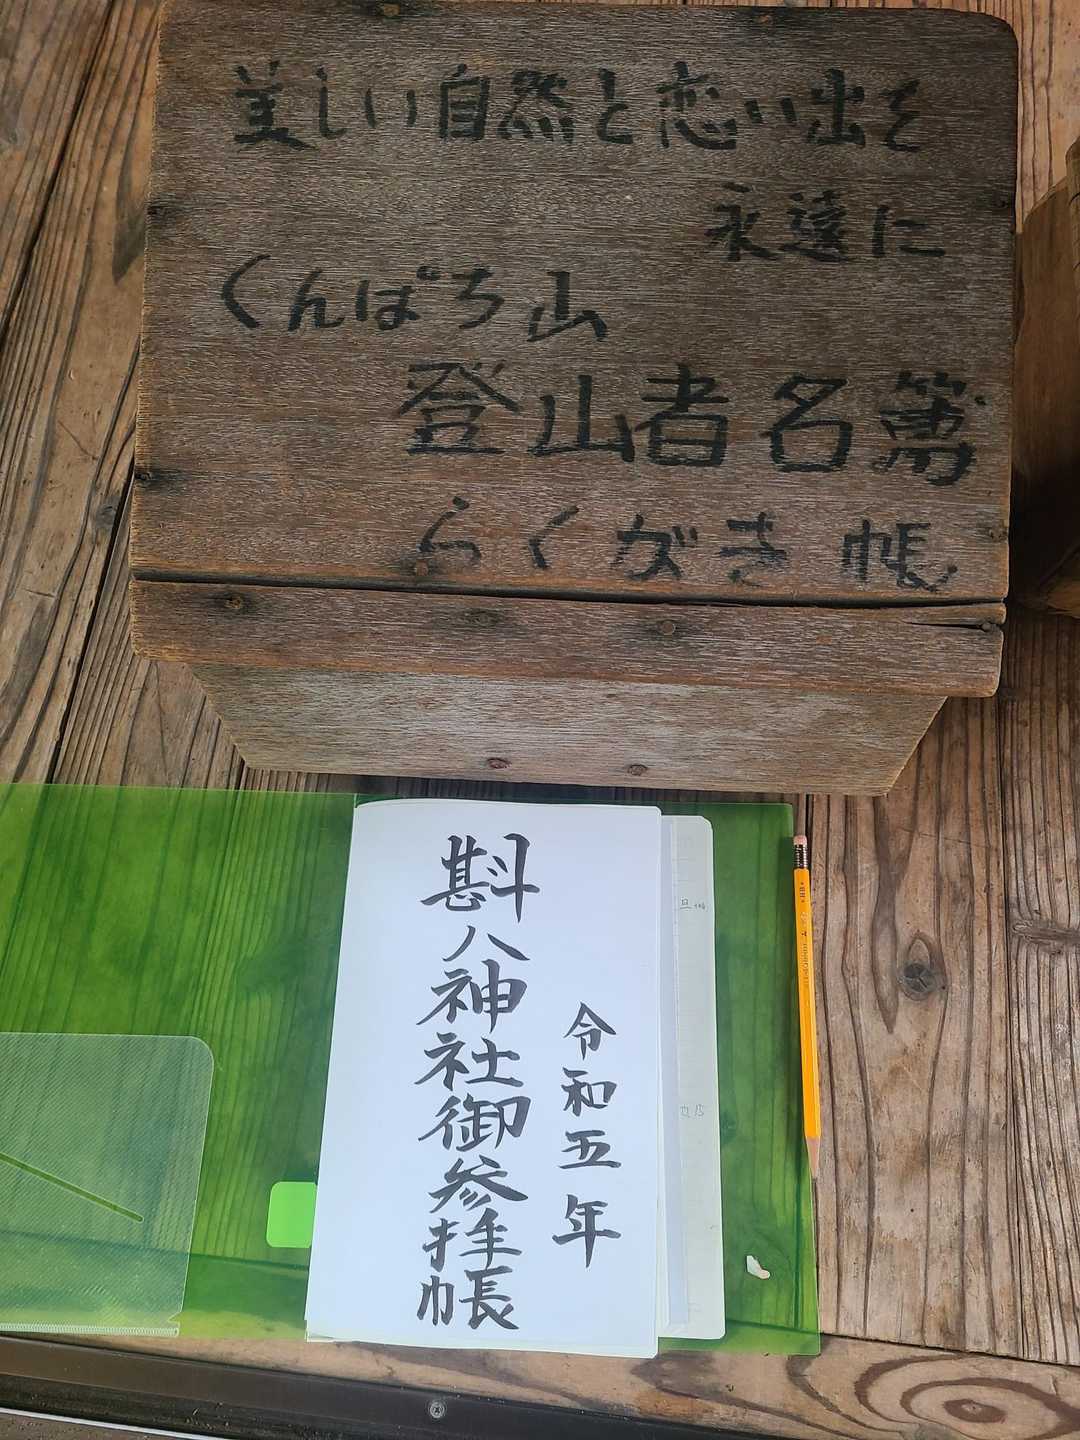 美しい自然と恋い出を
永遠に
くんぱち山
登山者名簿
らくがき帳
令和五年
斟八神社御参拝帳